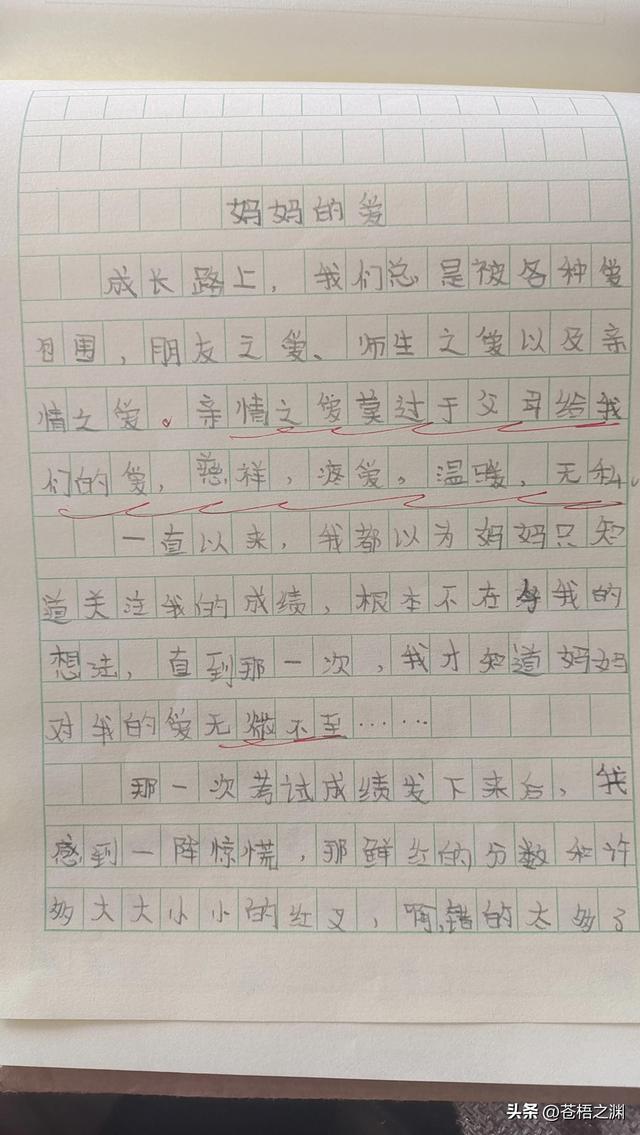 妈妈的爱
成长路上，我们总是被各种爱
包围，朋友之爱、师生之爱以及亲
情之爱。亲情之爱莫过于父母给我
们的爱，慈祥，疼爱。温暖，无私。
一直以来，我都以为妈妈只知
道关注我的成绩，根本不在乎我的
想法，直到那一次，我才知道妈妈
对我的爱无微不至……
那一次考试成绩发下来后，我
感到一阵惊慌，那鲜红的分数和许
多大大小小的红叉，啊，错的太多了
头条 @苍梧之渊